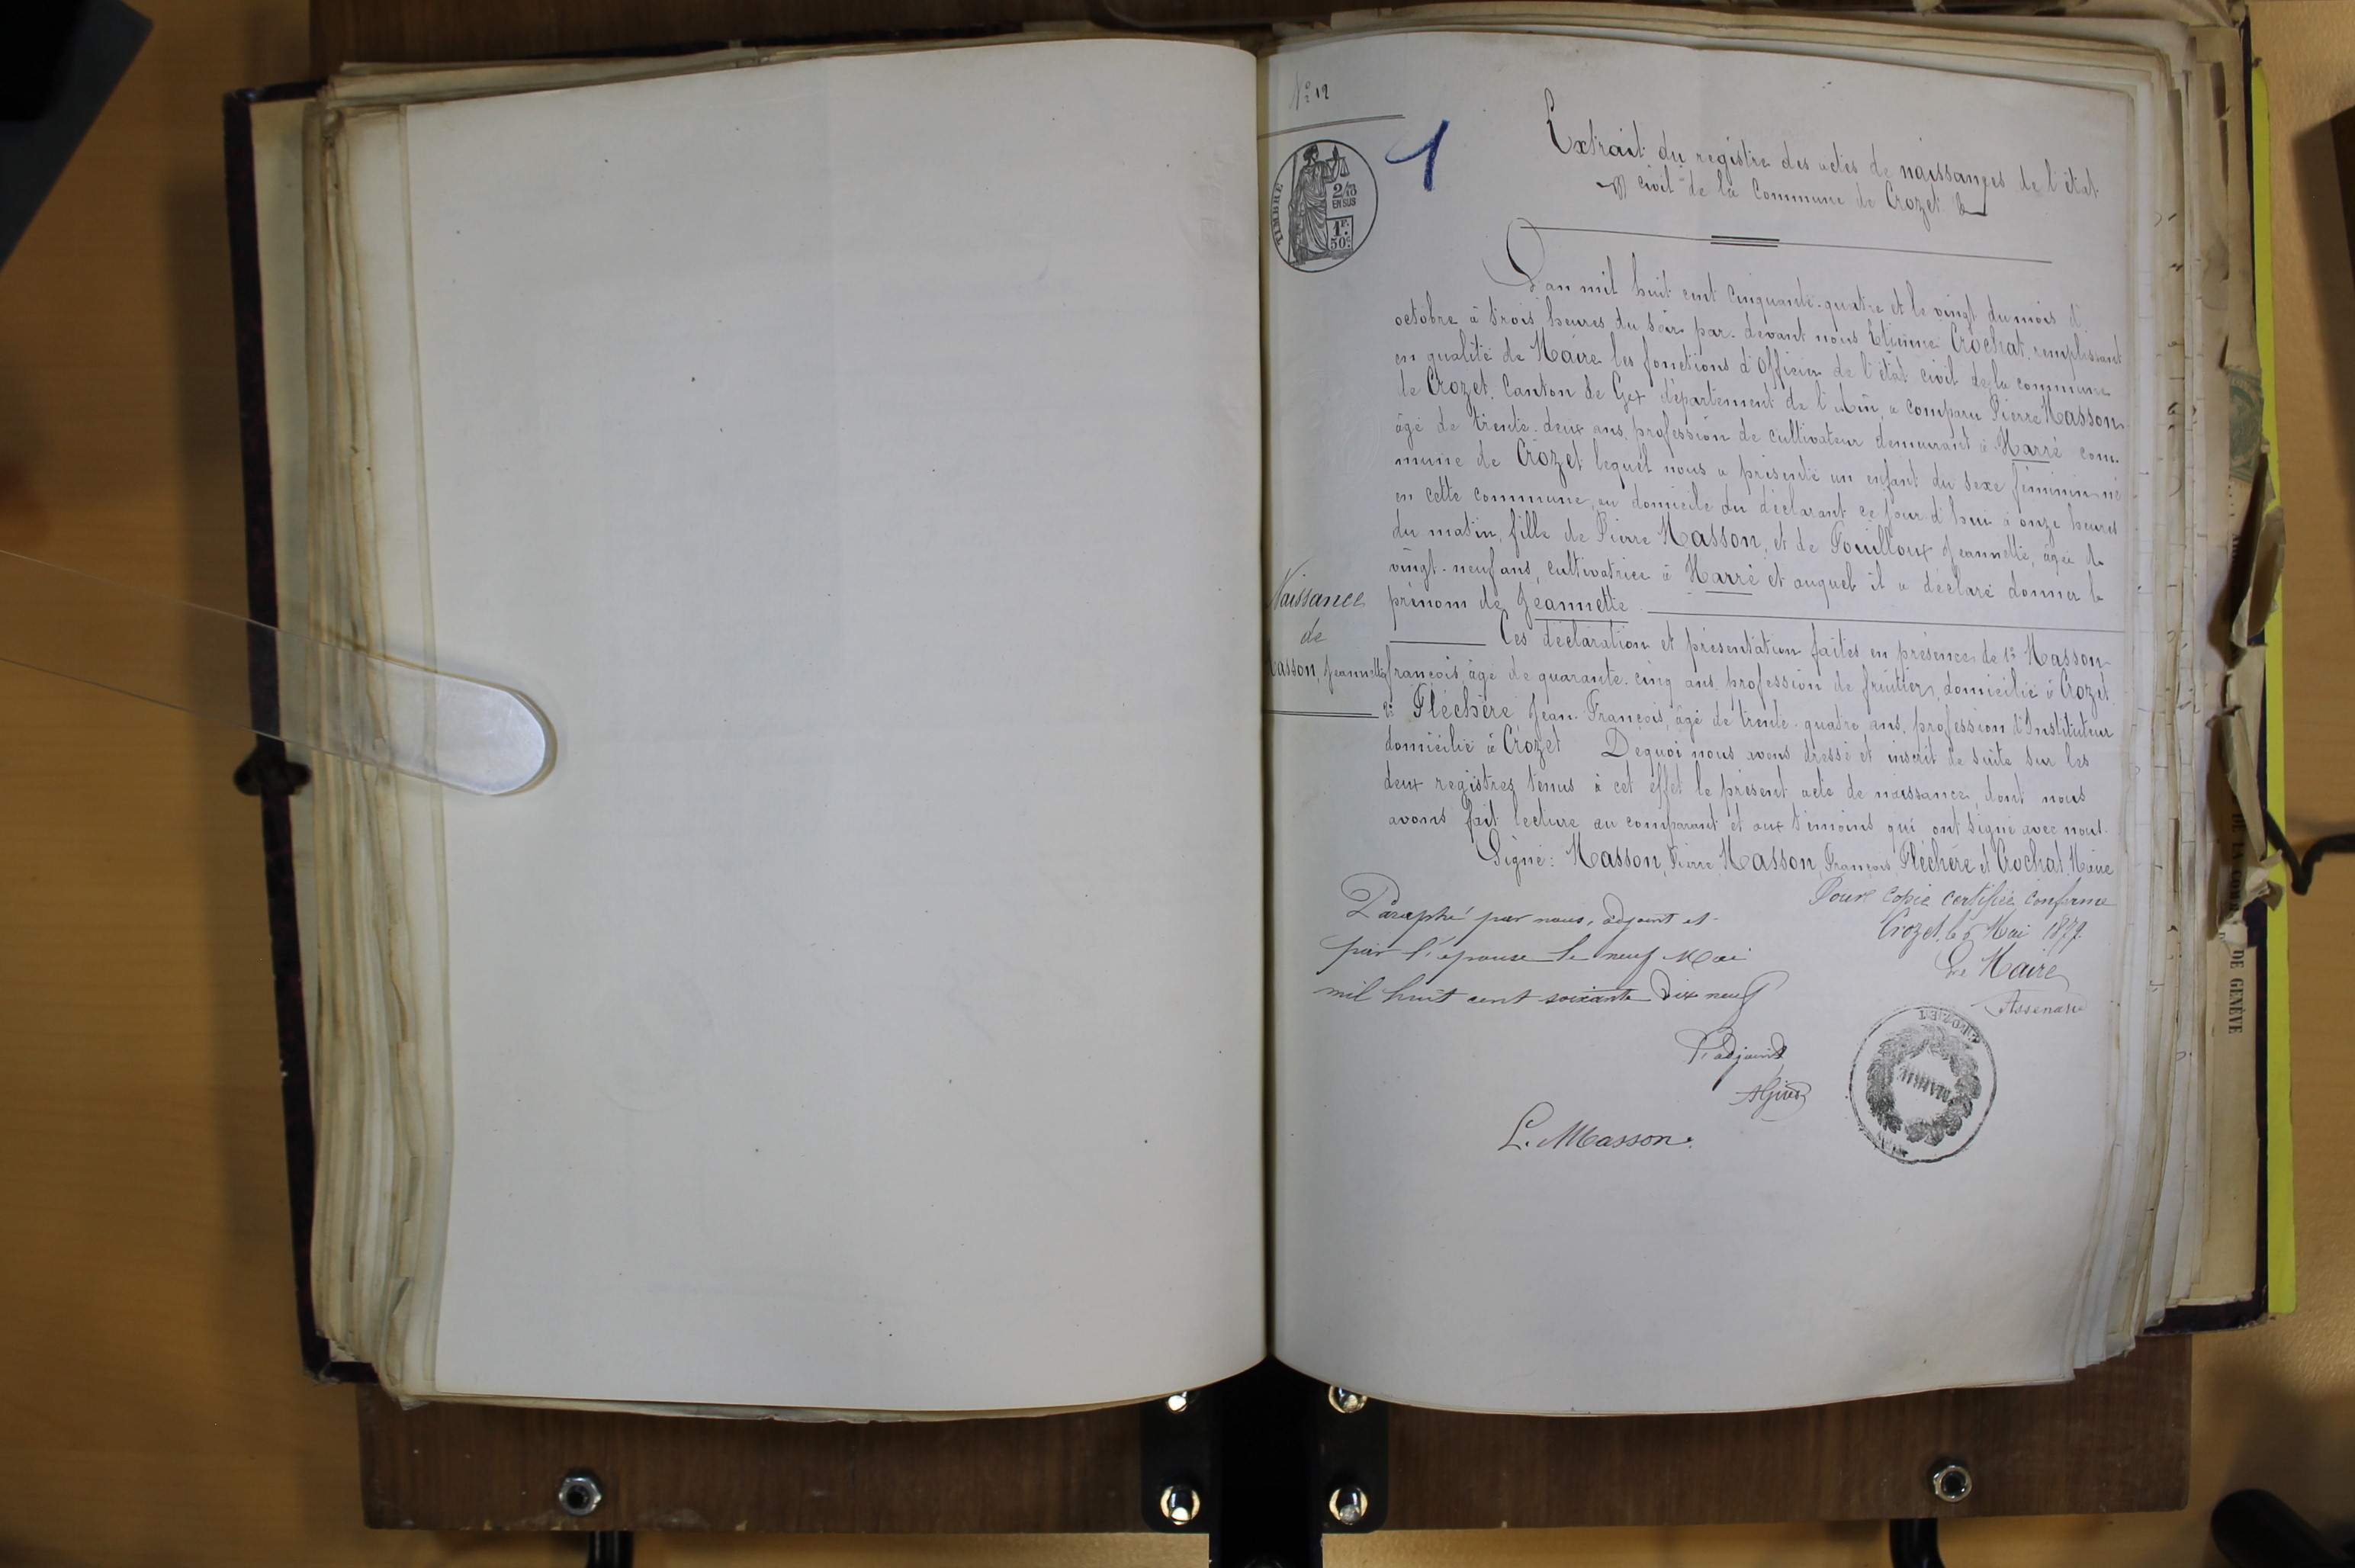 N° 12
1
TIMBRE
2/10
EN SUS
1F.
50c
Extrait du registre des actes de naissances de l'état
civil de la Commune de Crozet
L'an mil huit cent cinquante-quatre et le vingt du mois d'
octobre à trois heures du soir par-devant nous Etienne Crochat, remplissant
en qualité de Maire les fonctions d'Officier de l'état civil de la commune
de Crozet, Canton de Gex département de l'Ain, a comparu Pierre Masson
âgé de trente-deux ans, profession de cultivateur demeurant à Harré com-
mune de Crozet lequel nous a présenté un enfant du sexe féminin né
en cette commune, au domicile du déclarant ce jour d'hui à onze heures
du matin, fille de Pierre Masson, et de Pouilloux Jeannette, âgée de
vingt-neuf ans, cultivatrice à Harré et auquel il a déclaré donner le
prénom de Jeannette
Naissance
de
Masson, Jeannette
Ces déclaration et présentation faites en présence de 1° Masson
françois, âgé de quarante-cinq ans, profession de fruitier, domicilié à Crozet
2° Fléchère Jean-François, âgé de trente-quatre ans, profession d'Instituteur
domicilié à Crozet De quoi nous avons dressé et inscrit de suite sur les
deux registres tenus à cet effet le présent acte de naissance, dont nous
avons fait lecture au comparant et aux témoins qui ont signé avec nous.
Signé: Masson, Pierre, Masson, François, Fléchère et Crochat, Maire
Pour copie certifiée conforme
Crozet, le 5 Mai 1879.
Le Maire
Paraphé par nous, adjoint et
par l'épouse le neuf Mai
mil huit cent soixante dix neuf
L'adjoint
L. Masson.
CROZET
DE GENÈVE